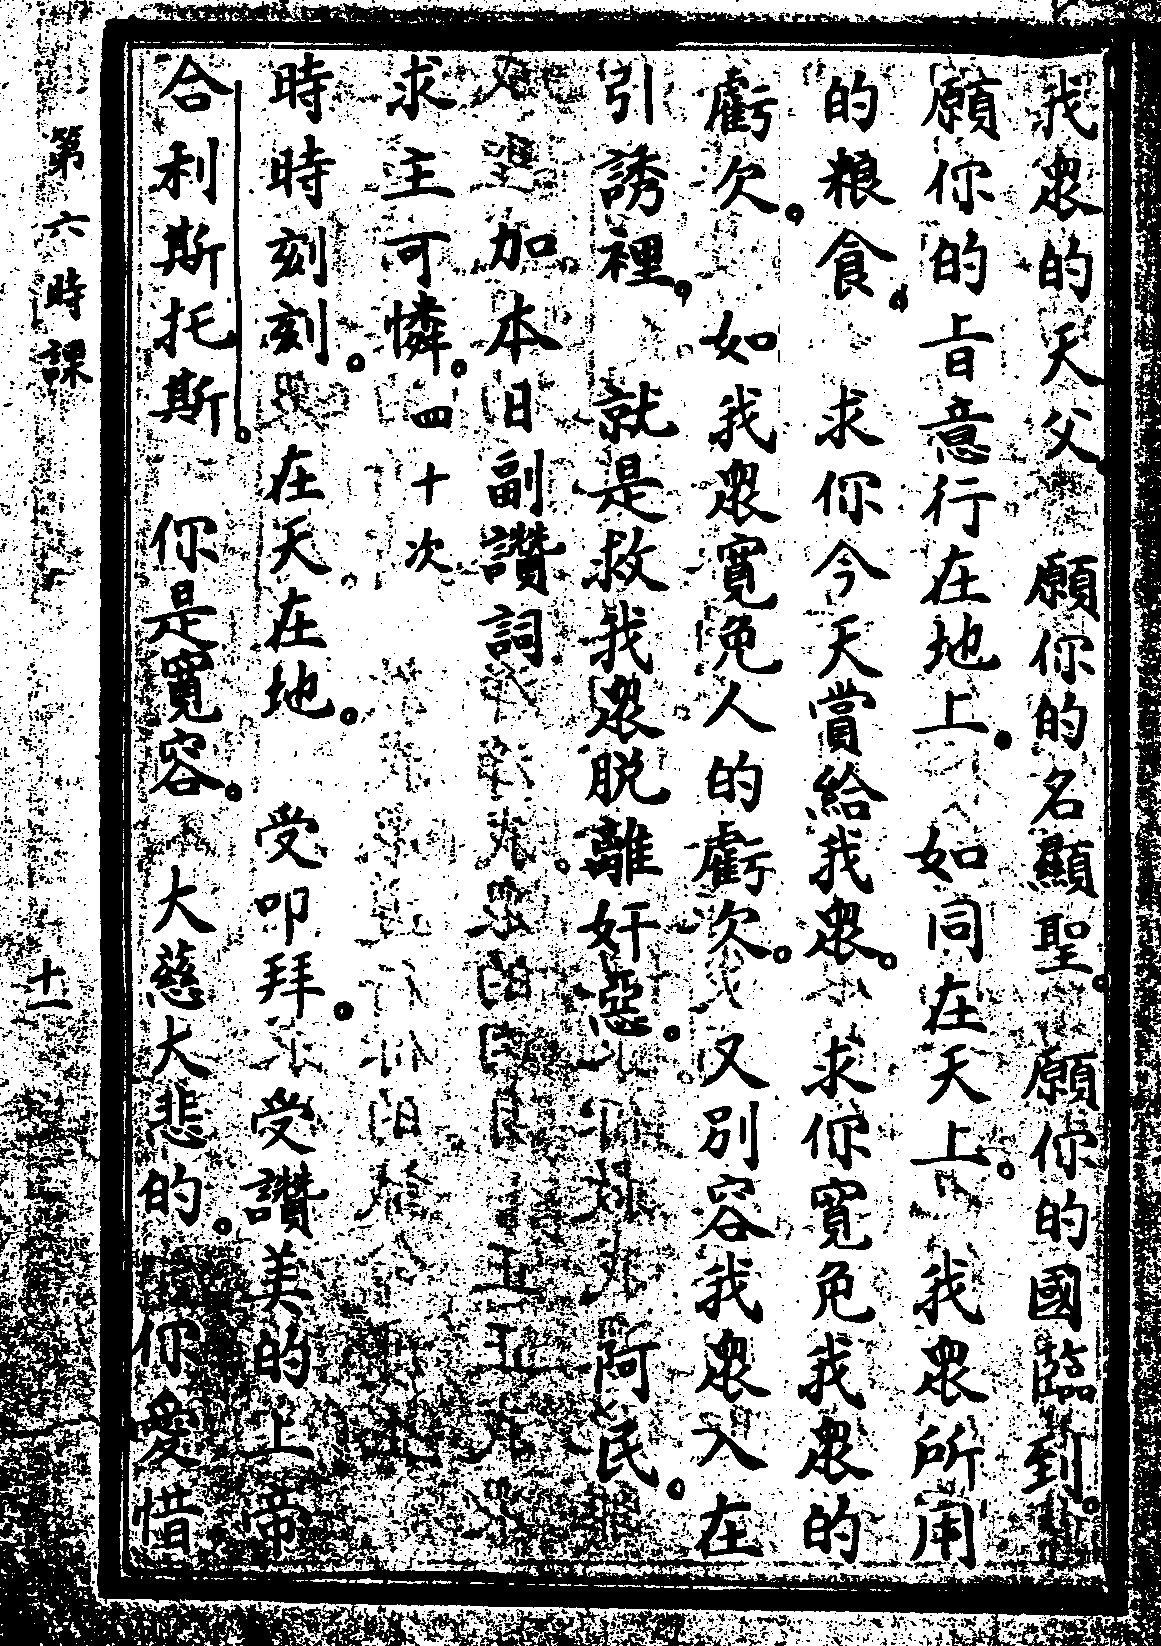 我衆的天父。願你的名顯聖。願你的國臨到。
願你的旨意行在地上。如同在天上。我衆所用
的粮食。求你今天賞給我衆。求你寬免我衆的
虧欠。如我衆寬免人的虧欠。又別容我衆入在
引誘裡。就是救我衆脱離奸惡。阿民。
加本日副讚詞
求主可憐。四十次
時時刻刻。在天在地。受叩拜。受讚美的上帝
合利斯托斯。你是寬容。大慈大悲的。你愛惜
第六時課
十一